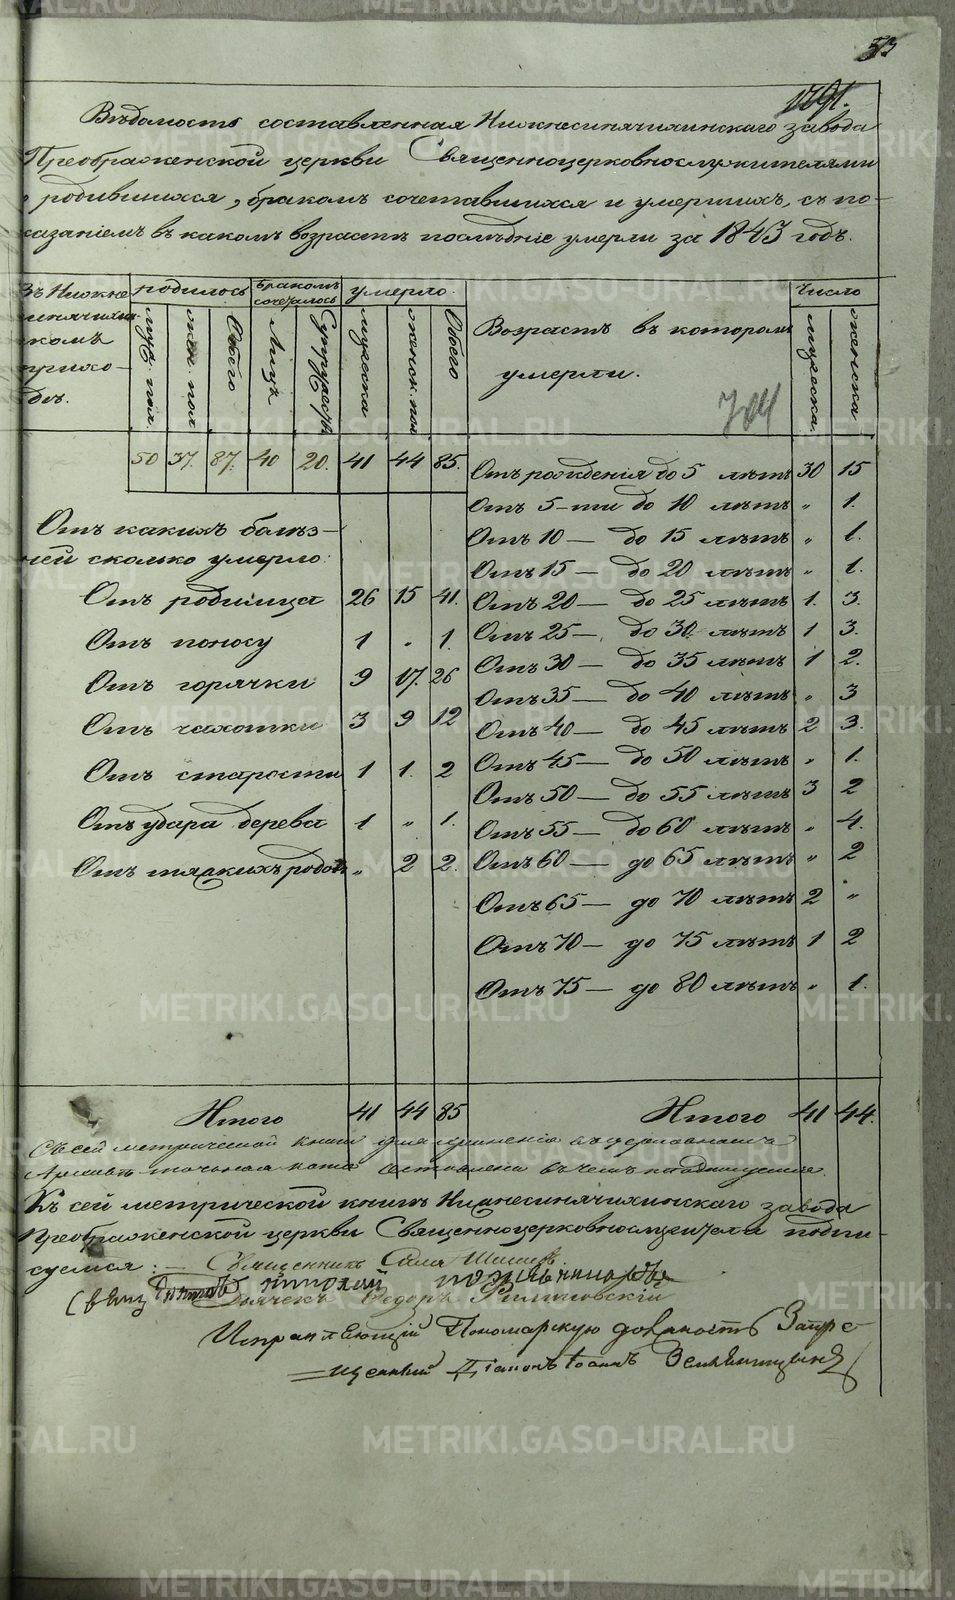 53
1791.
Вѣдомость составленная Нижнесинячихинскаго завода
Преображенской церкви Священноцерковнослужителями
о родившихся, бракомъ сочетавшихся и умершихъ, съ по-
казаніемъ въ какомъ возрастѣ послѣдніе умерли за 1843 годъ.
Въ Нижне
синячихин
скомъ
прихо-
дѣ.
родилось
бракомъ сочеталось
умерло.
муж. пол.
жен. пол
Обоего
Лицъ
Супружествъ
мужеска
женск. пол
Обоего
Возрастъ въ которомъ
умерли.
Число
мужеска
женска
704
50 37. 87. 40 20. 41 44 85.
Отъ рожденія до 5 лѣтъ 30 15
Отъ 5-ти до 10 лѣтъ " 1.
Отъ 10 — до 15 лѣтъ " 1.
Отъ 15 — до 20 лѣтъ " 1.
Отъ 20 — до 25 лѣтъ 1. 3.
Отъ 25 — до 30 лѣтъ 1 3.
Отъ 30 — до 35 лѣтъ 1 2.
Отъ 35 — до 40 лѣтъ " 3
Отъ 40 — до 45 лѣтъ 2 3.
Отъ 45 — до 50 лѣтъ " 1.
Отъ 50 — до 55 лѣтъ 3 2
Отъ 55 — до 60 лѣтъ " 4.
Отъ 60 — до 65 лѣтъ " 2
Отъ 65 — до 70 лѣтъ 2 "
Отъ 70 — до 75 лѣтъ 1 2
Отъ 75 — до 80 лѣтъ " 1.
Отъ какихъ болѣз-
ней сколько умерло:
Отъ родимца 26 15 41.
Отъ поносу 1 " 1.
Отъ горячки 9 17. 26
Отъ чахотки 3 9 12
Отъ старости 1 1. 2
Отъ удара дерева 1 " 1.
Отъ тяжкихъ родовъ " 2 2.
Итого 41 44 85
Итого 41 44.
Съ сей метрической книги для храненія въ церковномъ
Архивѣ точная копія составлена въ чемъ и подпишемся.
Къ сей метрической книгѣ Нижнесинячихинскаго завода
Преображенской церкви Священноцерковнослужители подпи-
суемся: — Священникъ
Николай
Дьячекъ Ѳедоръ
Исправляющій Пономарскую должность Запре-
щенный Діаконъ Іоаннъ Земляницынъ
METRIKI.GASO-URAL.RU